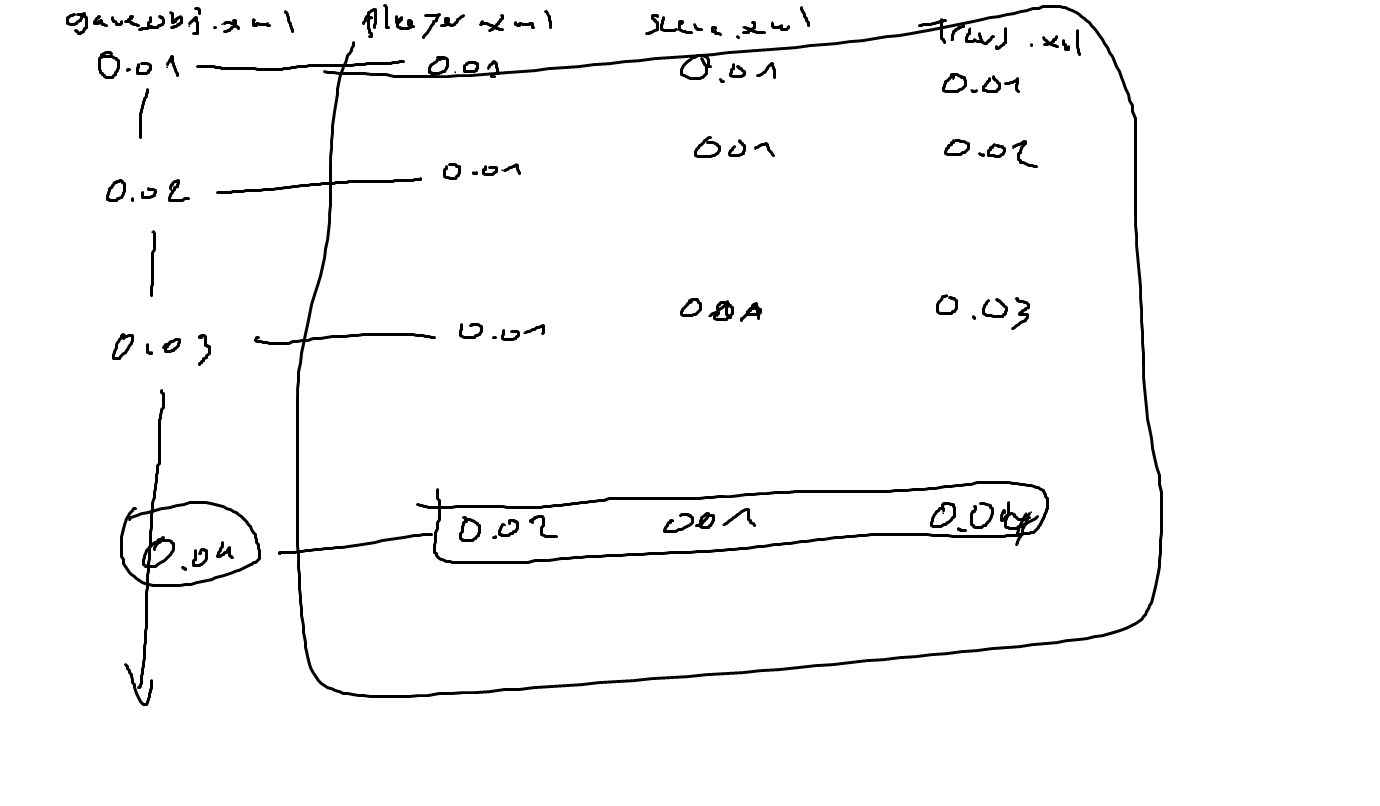 gameobj.xml player.xml scene.xml .xml
0.01 0.01 0.01 0.01
0.02 0.01 001 0.02
0.03 0.01 0.03
0.04 0.02 001 0.04